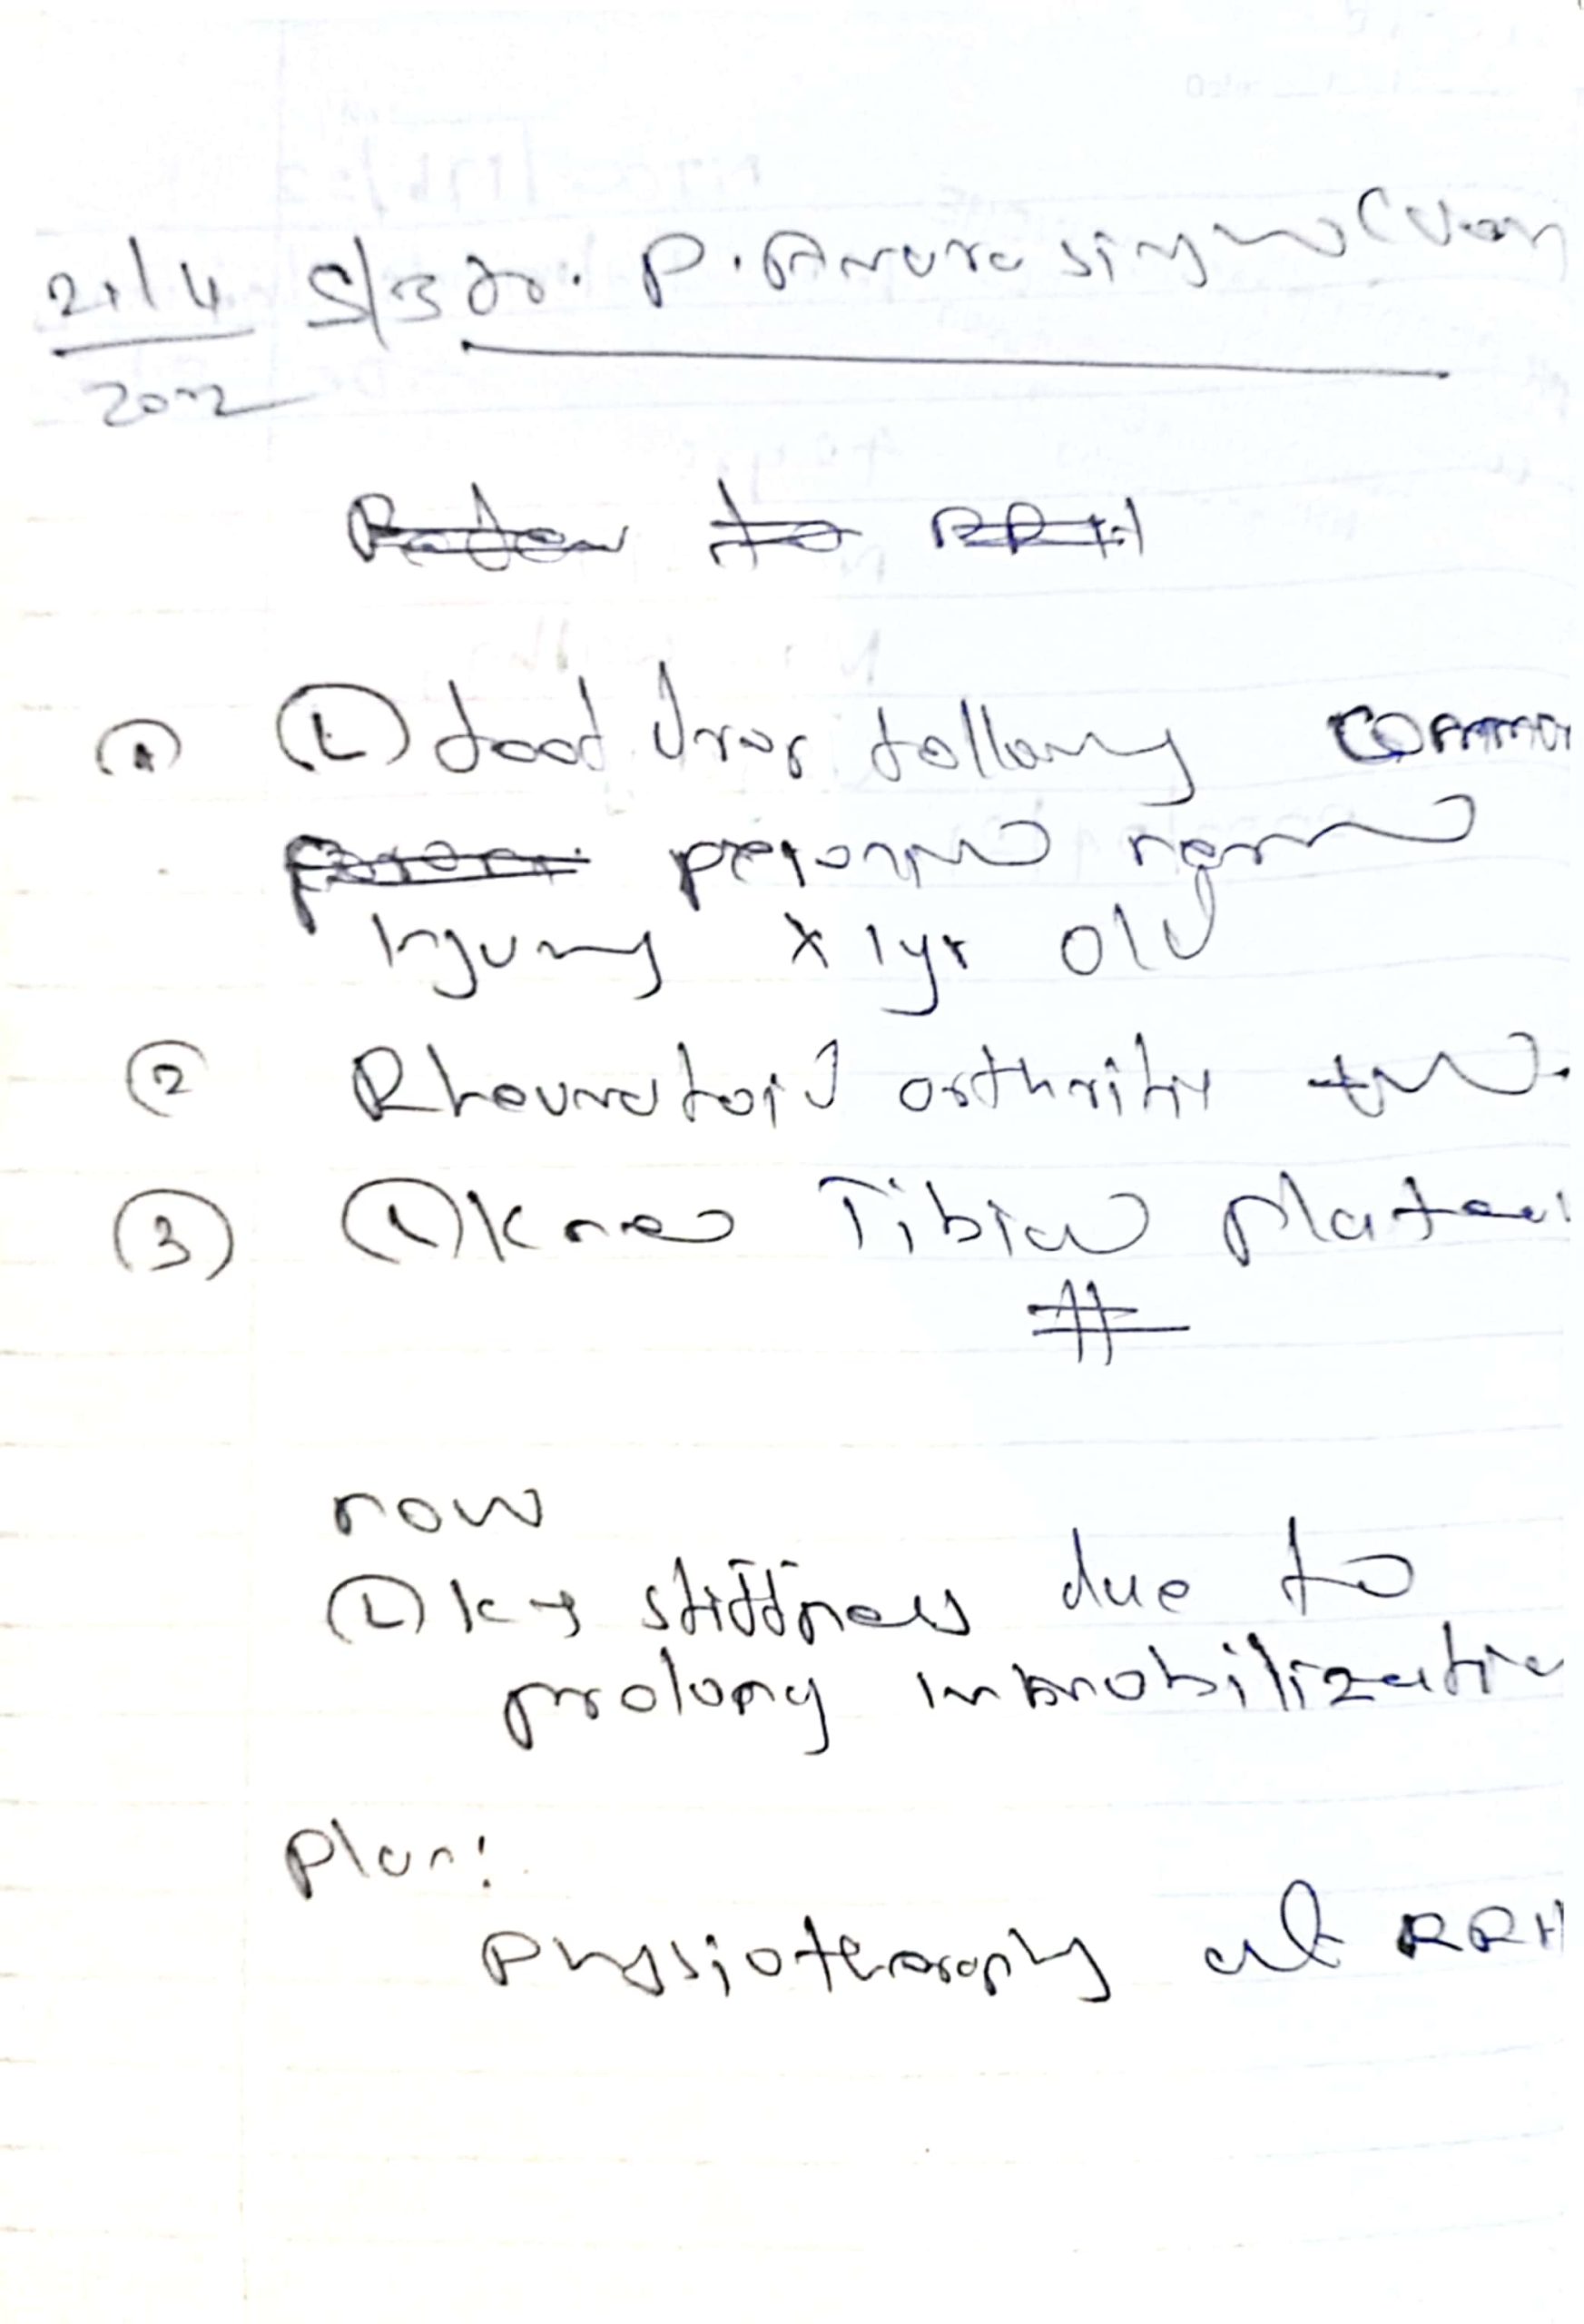 21/4 S/B Dr. P. Amarasingha
2022
Refer to RRH
① Ⓛ foot drop following common
peroneal nerve
Injury x 1yr old
② Rheumatoid arthritis
③ Ⓛ Knee Tibial plateau
#
now
Ⓛ knee stiffness due to
prolong immobilization
Plan:
Physiotherapy at RRH